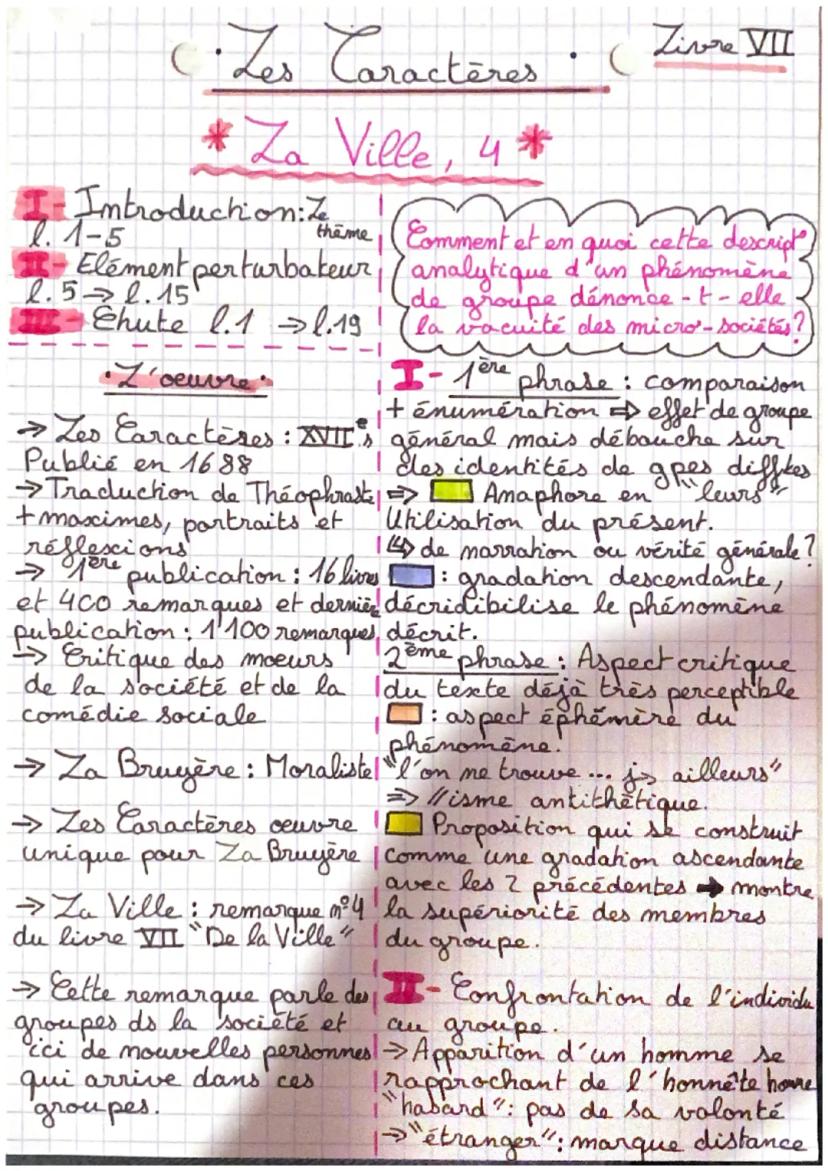 Les Caractères
Livre VII
* La Ville, 4 *
I- Introduction: Le thème
l. 1-5
II- Elément perturbateur
l. 5 → l. 15
III- Chute l.1 → l.19
L'oeuvre
→ Les Caractères : XVIIe s
Publié en 1688
→ Traduction de Théophraste
+ maximes, portraits et
réflexions
→ 1ère publication : 16 livres
et 400 remarques et dernière
publication : 1 100 remarques
→ Critique des moeurs
de la société et de la
comédie sociale
→ La Bruyère : Moraliste
→ Les Caractères oeuvre
unique pour La Bruyère
→ La Ville : remarque n°4
du livre VII "De la Ville"
→ Cette remarque parle des
groupes ds la société et
ici de nouvelles personnes
qui arrive dans ces
groupes.
Comment et en quoi cette descript°
analytique d'un phénomène
de groupe dénonce-t-elle
la vacuité des micro-sociétés?
I- 1ère phrase : comparaison
+ énumération ⇒ effet de groupe
général mais débouche sur
des identités de gpes diffts
⇒ Anaphore en "leurs"
Utilisation du présent.
↳ de narration ou vérité générale?
: gradation descendante,
décridibilise le phénomène
décrit.
2ème phrase : Aspect critique
du texte déjà très perceptible
: aspect éphémère du
phénomène.
"l'on ne trouve ... js ailleurs"
⇒ //isme antithétique.
Proposition qui se construit
comme une gradation ascendante
avec les 2 précédentes → montre
la supériorité des membres
du groupe.
II- Confrontation de l'individu
au groupe.
→ Apparition d'un homme se
rapprochant de l'honnête homme
"hasard": pas de sa volonté
→ "étranger": marque distance